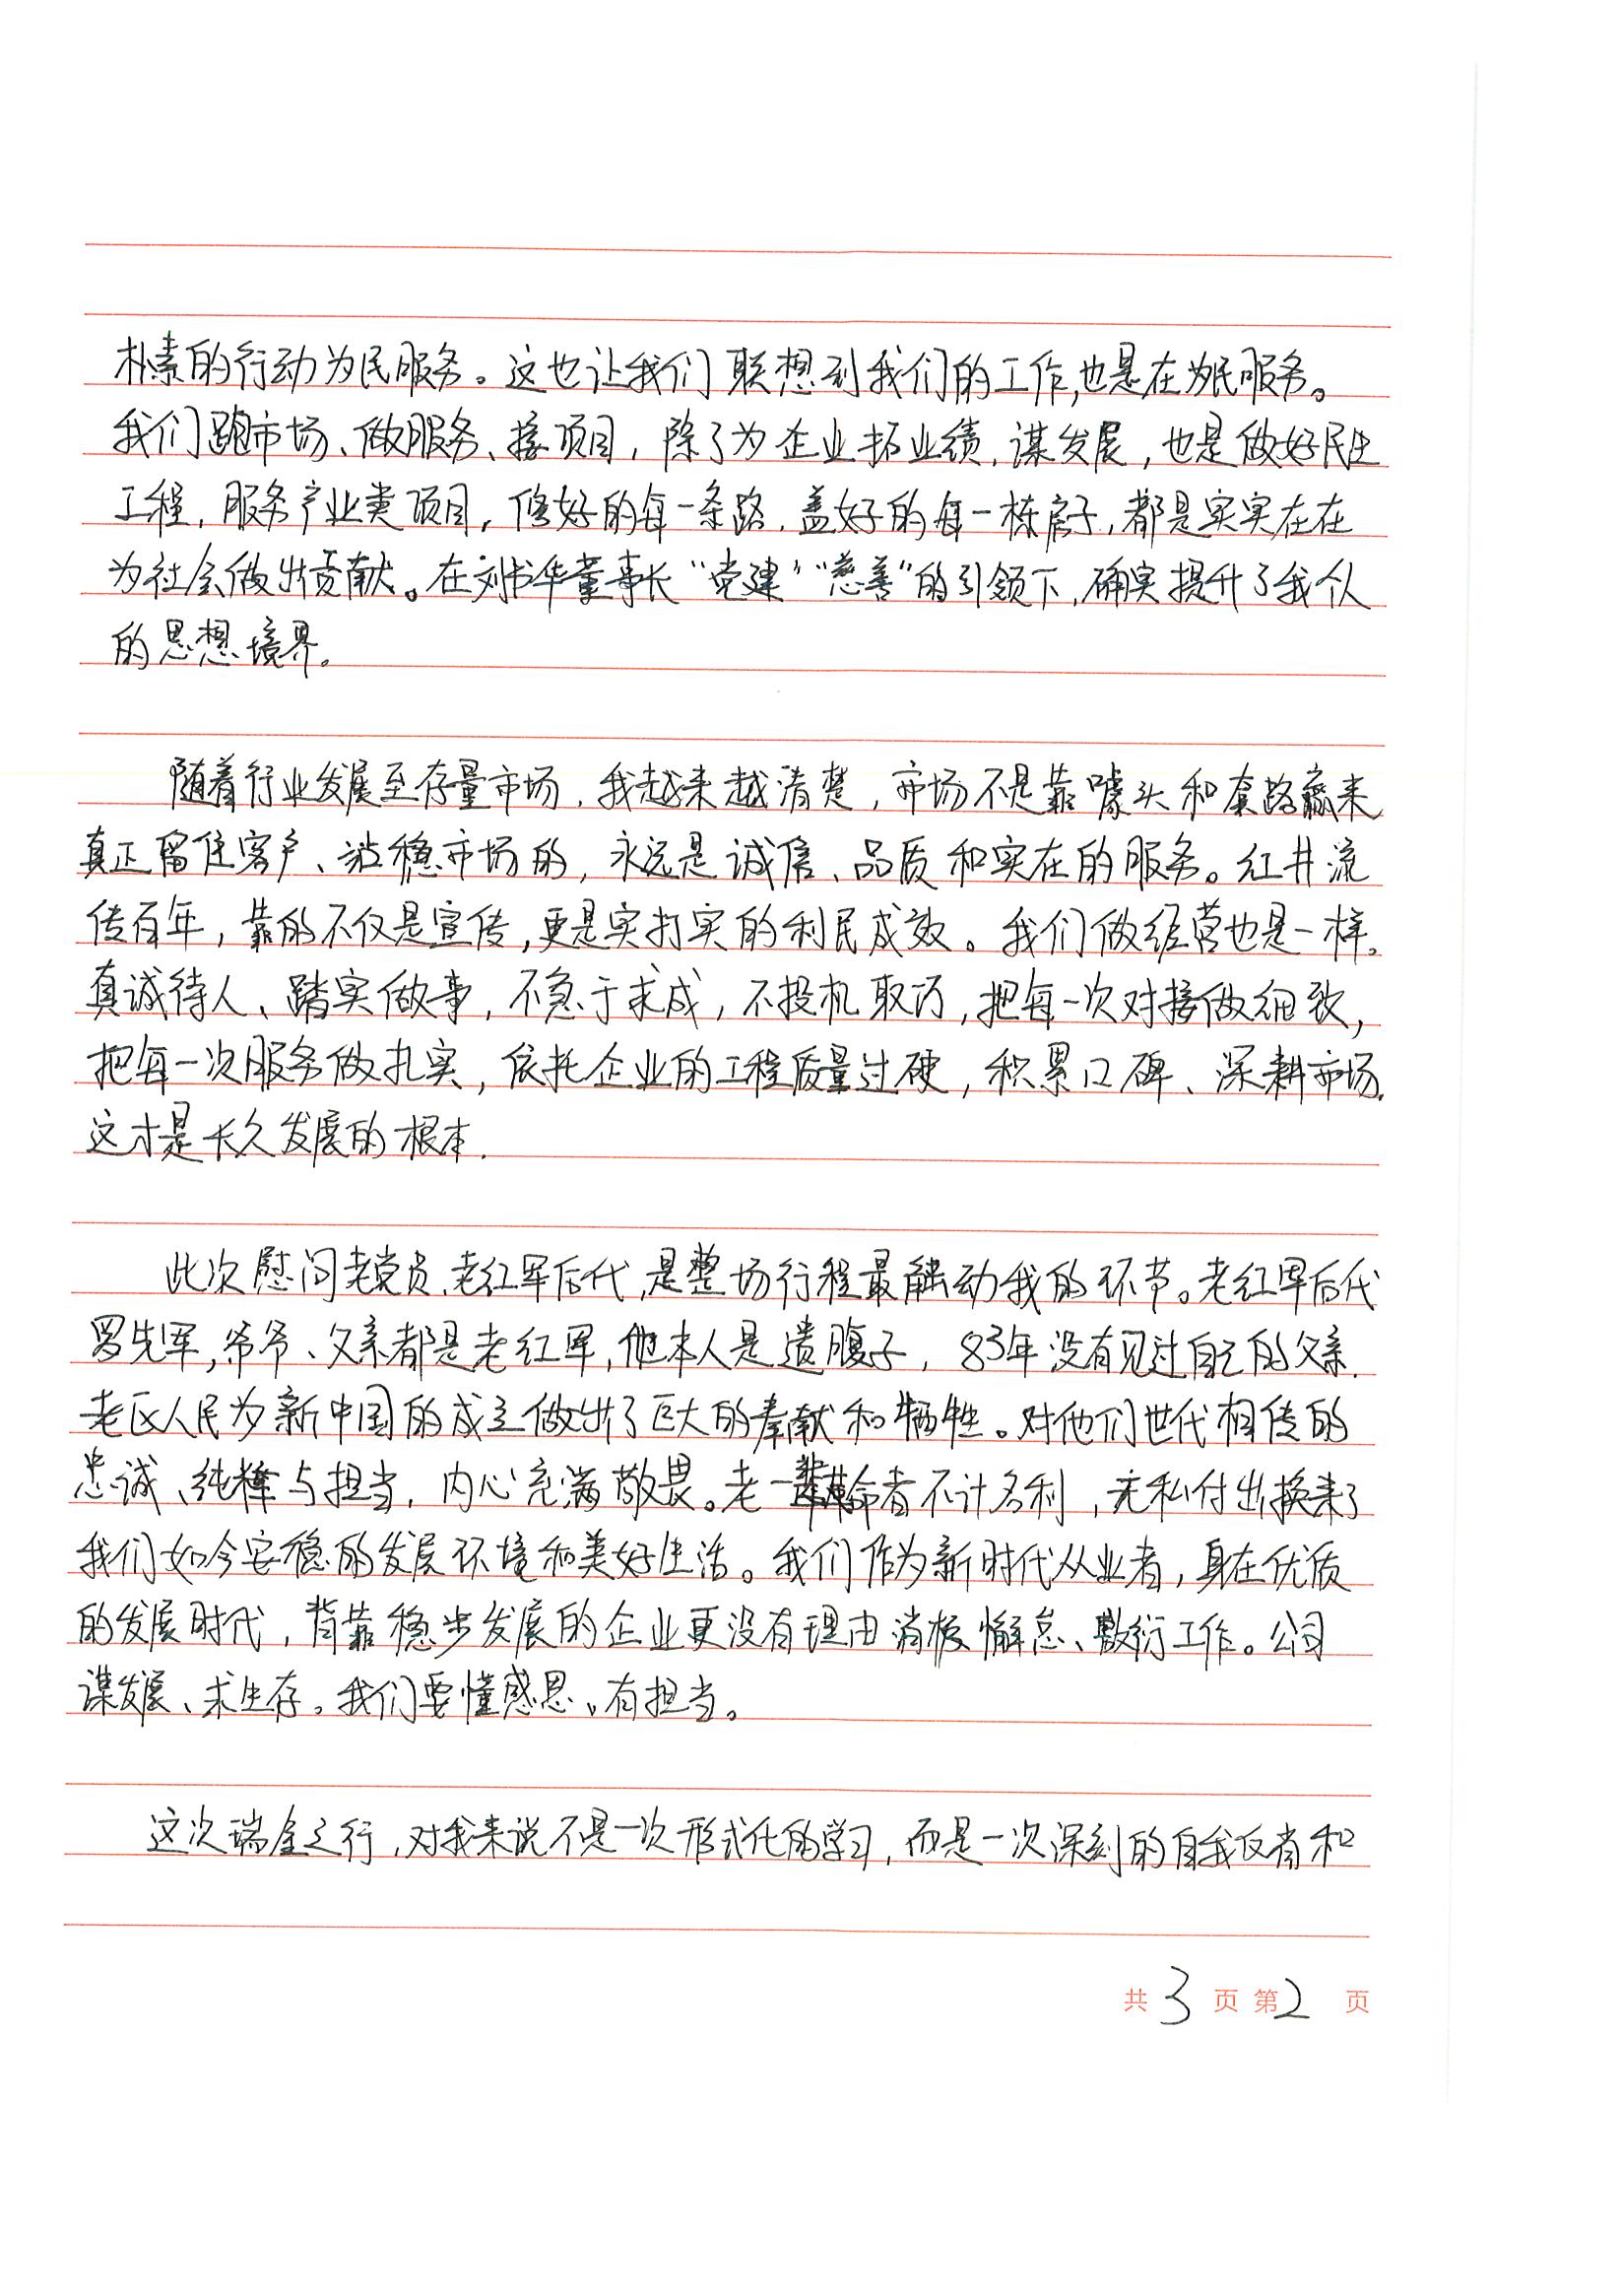 朴素的行动为民服务。这也让我们联想到我们的工作,也是在为民服务。
我们跑市场、做服务、接项目，除了为企业拓业绩,谋发展，也是做好民生
工程，服务产业类项目，修好的每一条路,盖好的每一栋房子,都是实实在在
为社会做出贡献。在刘书华董事长“党建”“慈善”的引领下,确实提升了我个人
的思想境界。
随着行业发展至存量市场，我越来越清楚，市场不是靠噱头和套路赢来
真正留住客户、站稳市场的，永远是诚信、品质和实在的服务。红井流
传百年，靠的不仅是宣传,更是实打实的利民成效。我们做经营也是一样。
真诚待人、踏实做事，不急于求成，不投机取巧，把每一次对接做细致，
把每一次服务做扎实，依托企业的工程质量过硬，积累口碑、深耕市场.
这才是长久发展的根本.
此次慰问老党员、老红军后代,是整场行程最触动我的环节。老红军后代
罗先军,爷爷、父亲都是老红军,他本人是遗腹子，83年没有见过自己的父亲.
老区人民为新中国的成立做出了巨大的奉献和牺牲。对他们世代相传的
忠诚、纯粹与担当，内心充满敬畏。老一辈革命者不计名利，无私付出换来了
我们如今安稳的发展环境和美好生活。我们作为新时代从业者，身在优质
的发展时代，背靠稳步发展的企业更没有理由消极懈怠、敷衍工作。公司
谋发展、求生存。我们要懂感恩、有担当。
这次瑞金之行，对我来说不是一次形式化的学习，而是一次深刻的自我反省和
共3页第2页